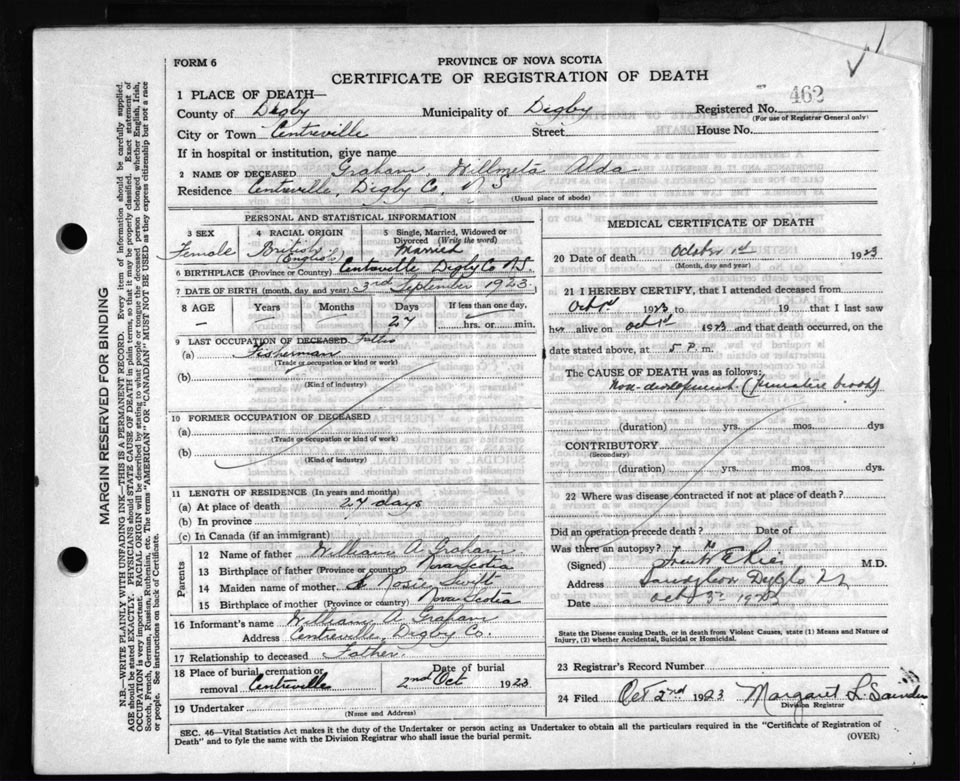 FORM 6
PROVINCE OF NOVA SCOTIA
CERTIFICATE OF REGISTRATION OF DEATH
1 PLACE OF DEATH—
County of Digby Municipality of Digby Registered No. 462
(For use of Registrar General only)
City or Town Centreville Street House No.
If in hospital or institution, give name
2 NAME OF DECEASED Graham, Willmeta Alda
Residence Centreville, Digby Co., N S
(Usual place of abode)
PERSONAL AND STATISTICAL INFORMATION
3 SEX 4 RACIAL ORIGIN 5 Single, Married, Widowed or Divorced (Write the word)
Female British (English) Married
6 BIRTHPLACE (Province or Country) Centreville Digby Co N.S.
7 DATE OF BIRTH (month, day and year) 3rd September 1923.
8 AGE Years Months Days If less than one day,
— 27 hrs. or min.
9 LAST OCCUPATION OF DECEASED
(a) Fisherman
(Trade or occupation or kind of work)
(b)
(Kind of industry)
10 FORMER OCCUPATION OF DECEASED
(a)
(Trade or occupation or kind of work)
(b)
(Kind of industry)
11 LENGTH OF RESIDENCE (In years and months)
(a) At place of death 27 days
(b) In province
(c) In Canada (if an immigrant)
Parents
12 Name of father William A. Graham
13 Birthplace of father (Province or country) Nova Scotia
14 Maiden name of mother Rosie Swift
15 Birthplace of mother (Province or country) Nova Scotia
16 Informant's name William A. Graham
Address Centreville, Digby Co.
17 Relationship to deceased Father.
18 Place of burial, cremation or removal Centreville Date of burial 2nd Oct 1923.
19 Undertaker
(Name and Address)
MEDICAL CERTIFICATE OF DEATH
20 Date of death October 1st 1923
(Month, day and year)
21 I HEREBY CERTIFY, that I attended deceased from
Oct 1st 1923 to 19 that I last saw
her alive on Oct 1st 1923 and that death occurred, on
date stated above, at 5 P. m.
The CAUSE OF DEATH was as follows:
Non-development
(duration) yrs. mos. dys
CONTRIBUTORY
(Secondary)
(duration) yrs. mos. dys.
22 Where was disease contracted if not at place of death?
Did an operation precede death? Date of
Was there an autopsy? No
(Signed) M.D.
Address Digby Co
Date Oct 1923
State the Disease causing Death, or in death from Violent Causes, state (1) Means and Nature of Injury, (2) whether Accidental, Suicidal or Homicidal.
23 Registrar's Record Number
24 Filed Oct 2nd 1923 Margaret L. Saunders
Division Registrar
SEC. 46—Vital Statistics Act makes it the duty of the Undertaker or person acting as Undertaker to obtain all the particulars required in the "Certificate of Registration of Death" and to fyle the same with the Division Registrar who shall issue the burial permit.
(OVER)
MARGIN RESERVED FOR BINDING
N.B.—WRITE PLAINLY WITH UNFADING INK—THIS IS A PERMANENT RECORD. Every item of information should be carefully supplied.
AGE should be stated EXACTLY. PHYSICIANS should STATE CAUSE OF DEATH in plain terms, so that it may be properly classified. Exact statement of
OCCUPATION is very important. RACIAL ORIGIN will be described by stating to what people or tongue the deceased person belonged whether English, Irish,
Scotch, French, German, Russian, Ruthenian, etc. The terms "AMERICAN" OR "CANADIAN" MUST NOT BE USED as they express citizenship but not a race
or people. See instructions on back of Certificate.